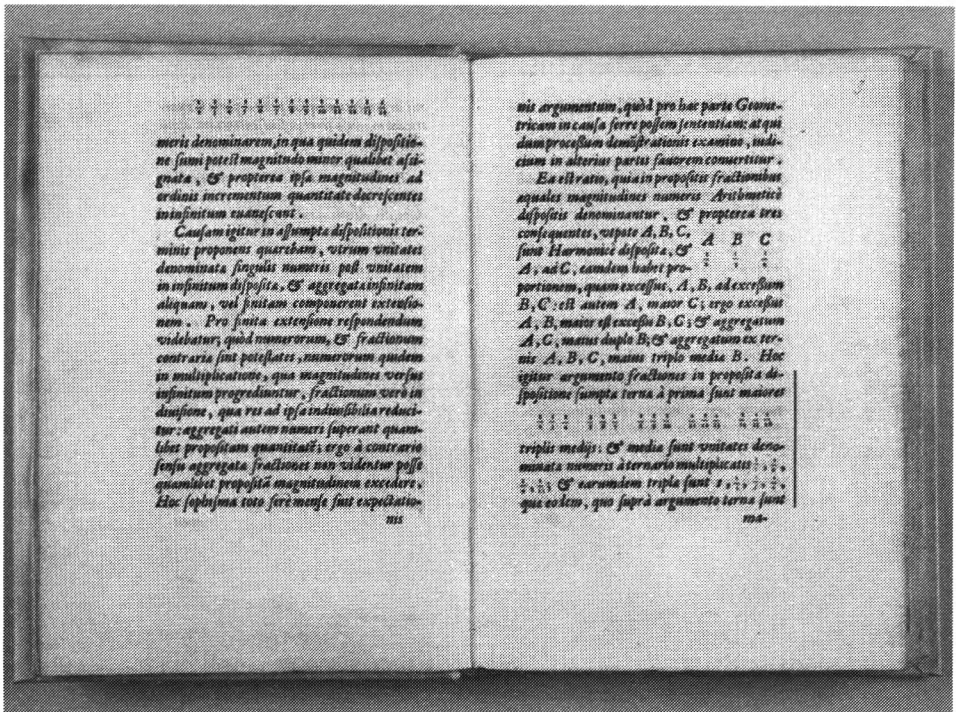 meris denominarem, in qua quidem dispositio-
ne sumi potest magnitudo minor qualibet assi-
gnata, & propterea ipsa magnitudines ad
ordinis incrementum quantitate decrescentes
in infinitum euanescunt.
Causam igitur in assumpta dispositionis ter-
minis proponens quarebam, vtrum vnitates
denominata singulis numeris post vnitatem
in infinitum disposita, & aggregata infinitam
aliquam, vel finitam componerent extensio-
nem. Pro finita extensione respondendum
videbatur; quòd numerorum, & fractionum
contraria sint potestates, numerorum quidem
in multiplicatione, qua magnitudines versus
infinitum progrediuntur, fractionum verò in
diuisione, qua res ad ipsa indiuisibilia reduci-
tur: aggregati autem numeri superant quam-
libet propositam quantitatē; ergo à contrario
sensu aggregata fractiones non videntur posse
quamlibet propositā magnitudinem excedere.
Hoc sophisma toto ferè mense fuit expectatio-
nis
3
nis argumentum, quòd pro hac parte Geome-
tricam in causa ferre possem sententiam: at qui
dum processum demōstrationis examino, iudi-
cium in alterius partis fauorem conuertitur.
Ea est ratio, quia in propositis fractionibus
aquales magnitudines numeris Arithmeticè
dispositis denominantur, & propterea tres
consequentes, vtpote A, B, C,
A B C
sunt Harmonicè disposita, &
A, ad C, eamdem habet pro-
portionem, quam excessus, A, B, ad excessum
B, C: est autem A, maior C; ergo excessus
A, B, maior est excessu B, C; & aggregatum
A, C, maius duplo B; & aggregatum ex ter-
nis A, B, C, maius triplo media B. Hoc
igitur argumento fractiones in proposita di-
spositione sumpta terna à prima sunt maiores
triplis medijs: & media sunt vnitates deno-
minata numeris à ternario multiplicatis
& earumdem tripla sunt 1,
que eodem, quo suprà argumento terna sunt
ma-